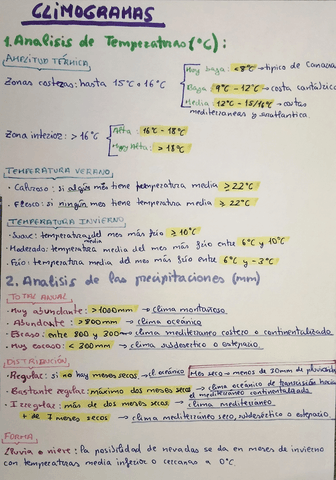 CLIMOGRAMAS
1. Analisis de Temperaturas (°C):
AMPLITUD TÉRMICA
Zonas costeras: hasta 15°C o 16°C
Muy baja <8°C → típico de Canarias
Baja 9°C - 12°C → costa cantábrica
Media 12°C - 15/16°C → costas
mediterraneas y suratlantica.
Zona interior: > 16°C
Alta: 16°C - 18°C
Muy Alta: > 18°C
TEMPERATURA VERANO
· Caluroso: si algún mes tiene temperatura media ≥ 22°C
· Fresco: si ningún mes tiene temperatura media ≥ 22°C
TEMPERATURA INVIERNO
· Suave: temperatura media del mes más frío ≥ 10°C
· Moderado: temperatura media del mes más frío entre 6°C y 10°C
· Frío: temperatura media del mes más frío entre 6°C y -3°C
2. Analisis de las precipitaciones (mm)
TOTAL ANUAL
· Muy abundante: >1000mm → clima montañoso
· Abundante: >800mm → clima oceánico
· Escaso: entre 800 y 300 → clima mediterraneo costero o continentalizado
· Muy escaso: < 300mm → clima subdesertico o estepario
DISTRIBUCIÓN
· Regular: si no hay meses secos → cl. oceánico
Mes seco → menos de 30mm de pluviosidad
· Bastante regular: máximo dos meses secos → clima oceánico de transición hacia
el mediterraneo continentalizado
· Irregular: más de dos meses secos → clima mediterraneo
+ de 7 meses secos → clima mediterráneo seco, subdesértico o estepario
FORMA
Lluvia o nieve: la posibilidad de nevadas se da en meses de invierno
con temperaturas media inferior o cercanas a 0°C